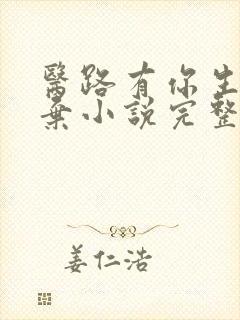 醫路有你生
棄小說完整
姜仁浩